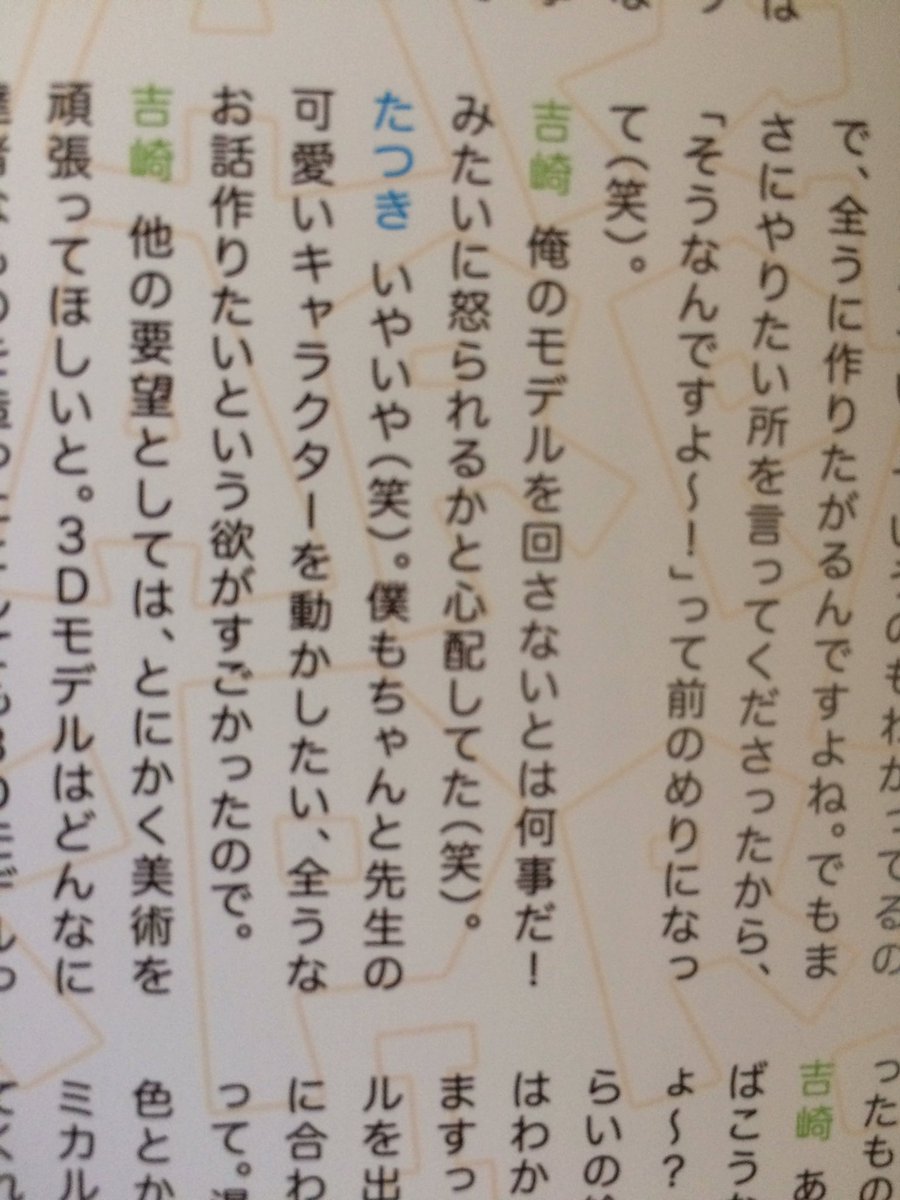 は
のもわかってるの
で、全うに作りたがるんですよね。でもま
さにやりたい所を言ってくださったから、
「そうなんですよ〜!」って前のめりになっ
て(笑)。
吉崎 俺のモデルを回さないとは何事だ!
みたいに怒られるかと心配してた(笑)。
たつき いやいや(笑)。僕もちゃんと先生の
可愛いキャラクターを動かしたい、全うな
お話作りたいという欲がすごかったので。
吉崎 他の要望としては、とにかく美術を
頑張ってほしいと。3Dモデルはどんなに
ったもの
吉崎 あ
ばこう
ょ〜?
らいの
はわか
ますっ
ルを出
に合わ
って。
色とか
ミカル
てくれ